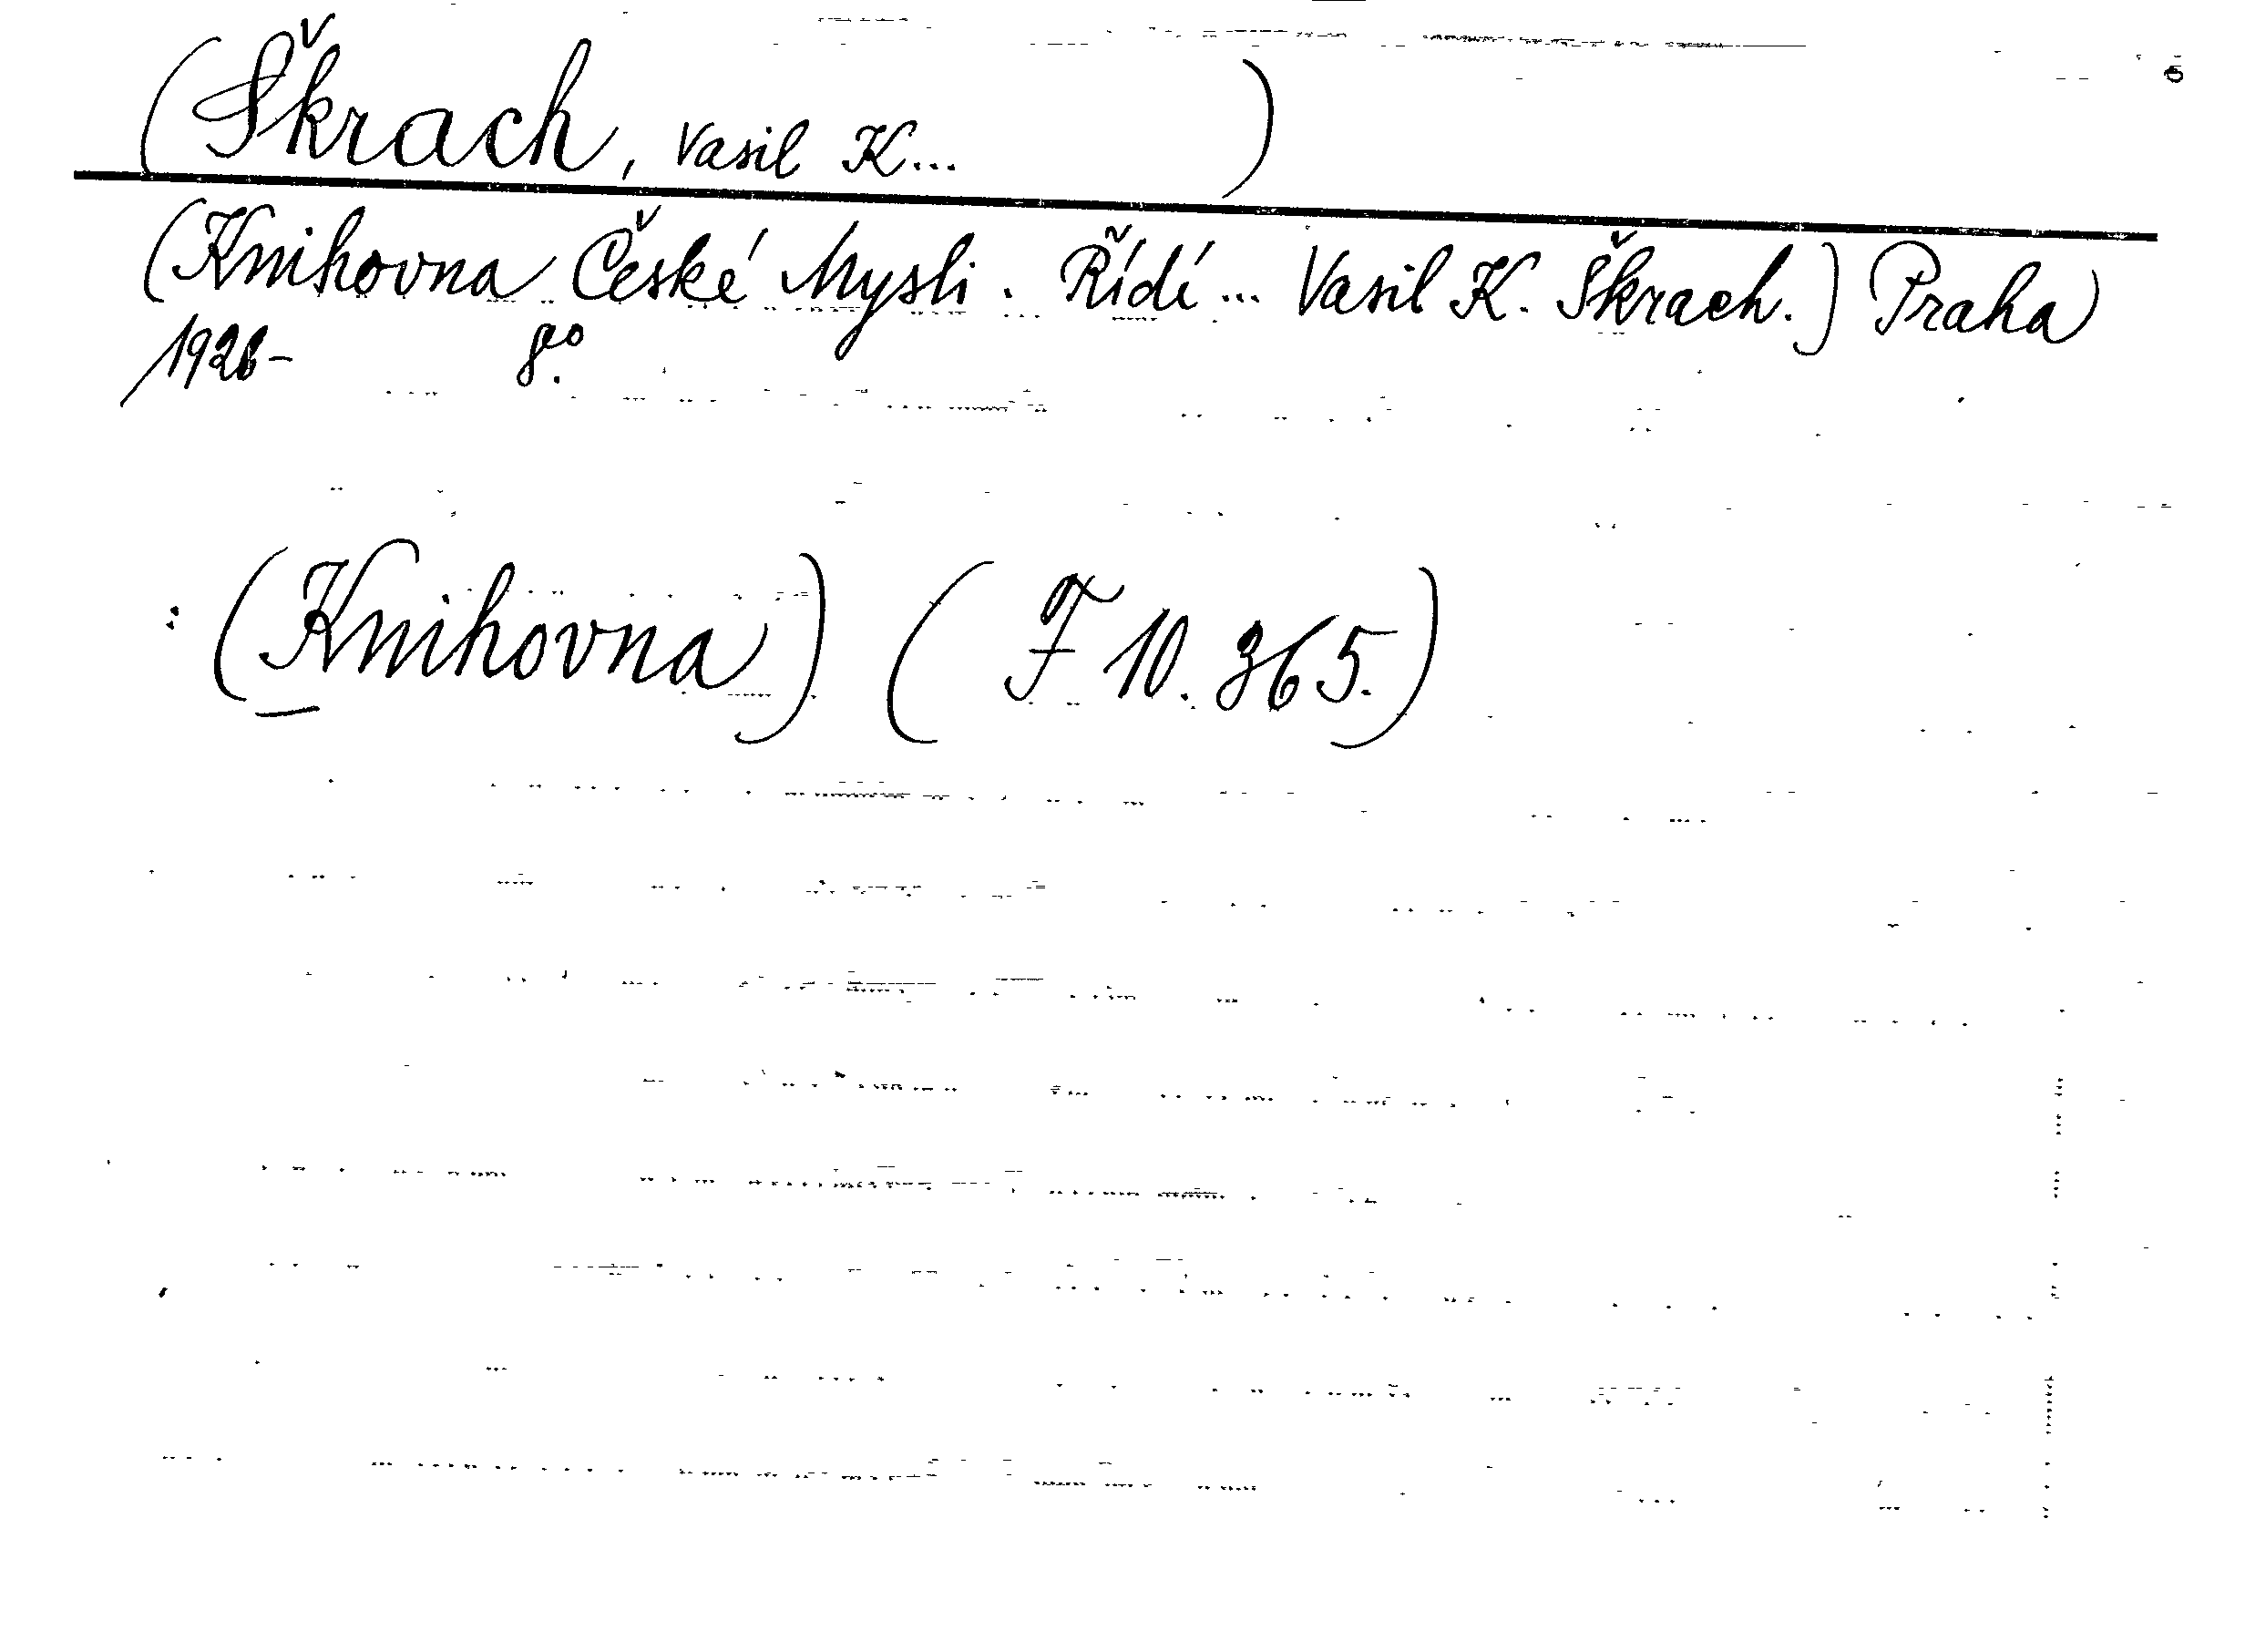 (Škrach, Vasil K... )
(Knihovna České Mysli. Řídí... Vasil K. Škrach.) Praha
1926- 8°.
: (Knihovna) (F 10.365.)